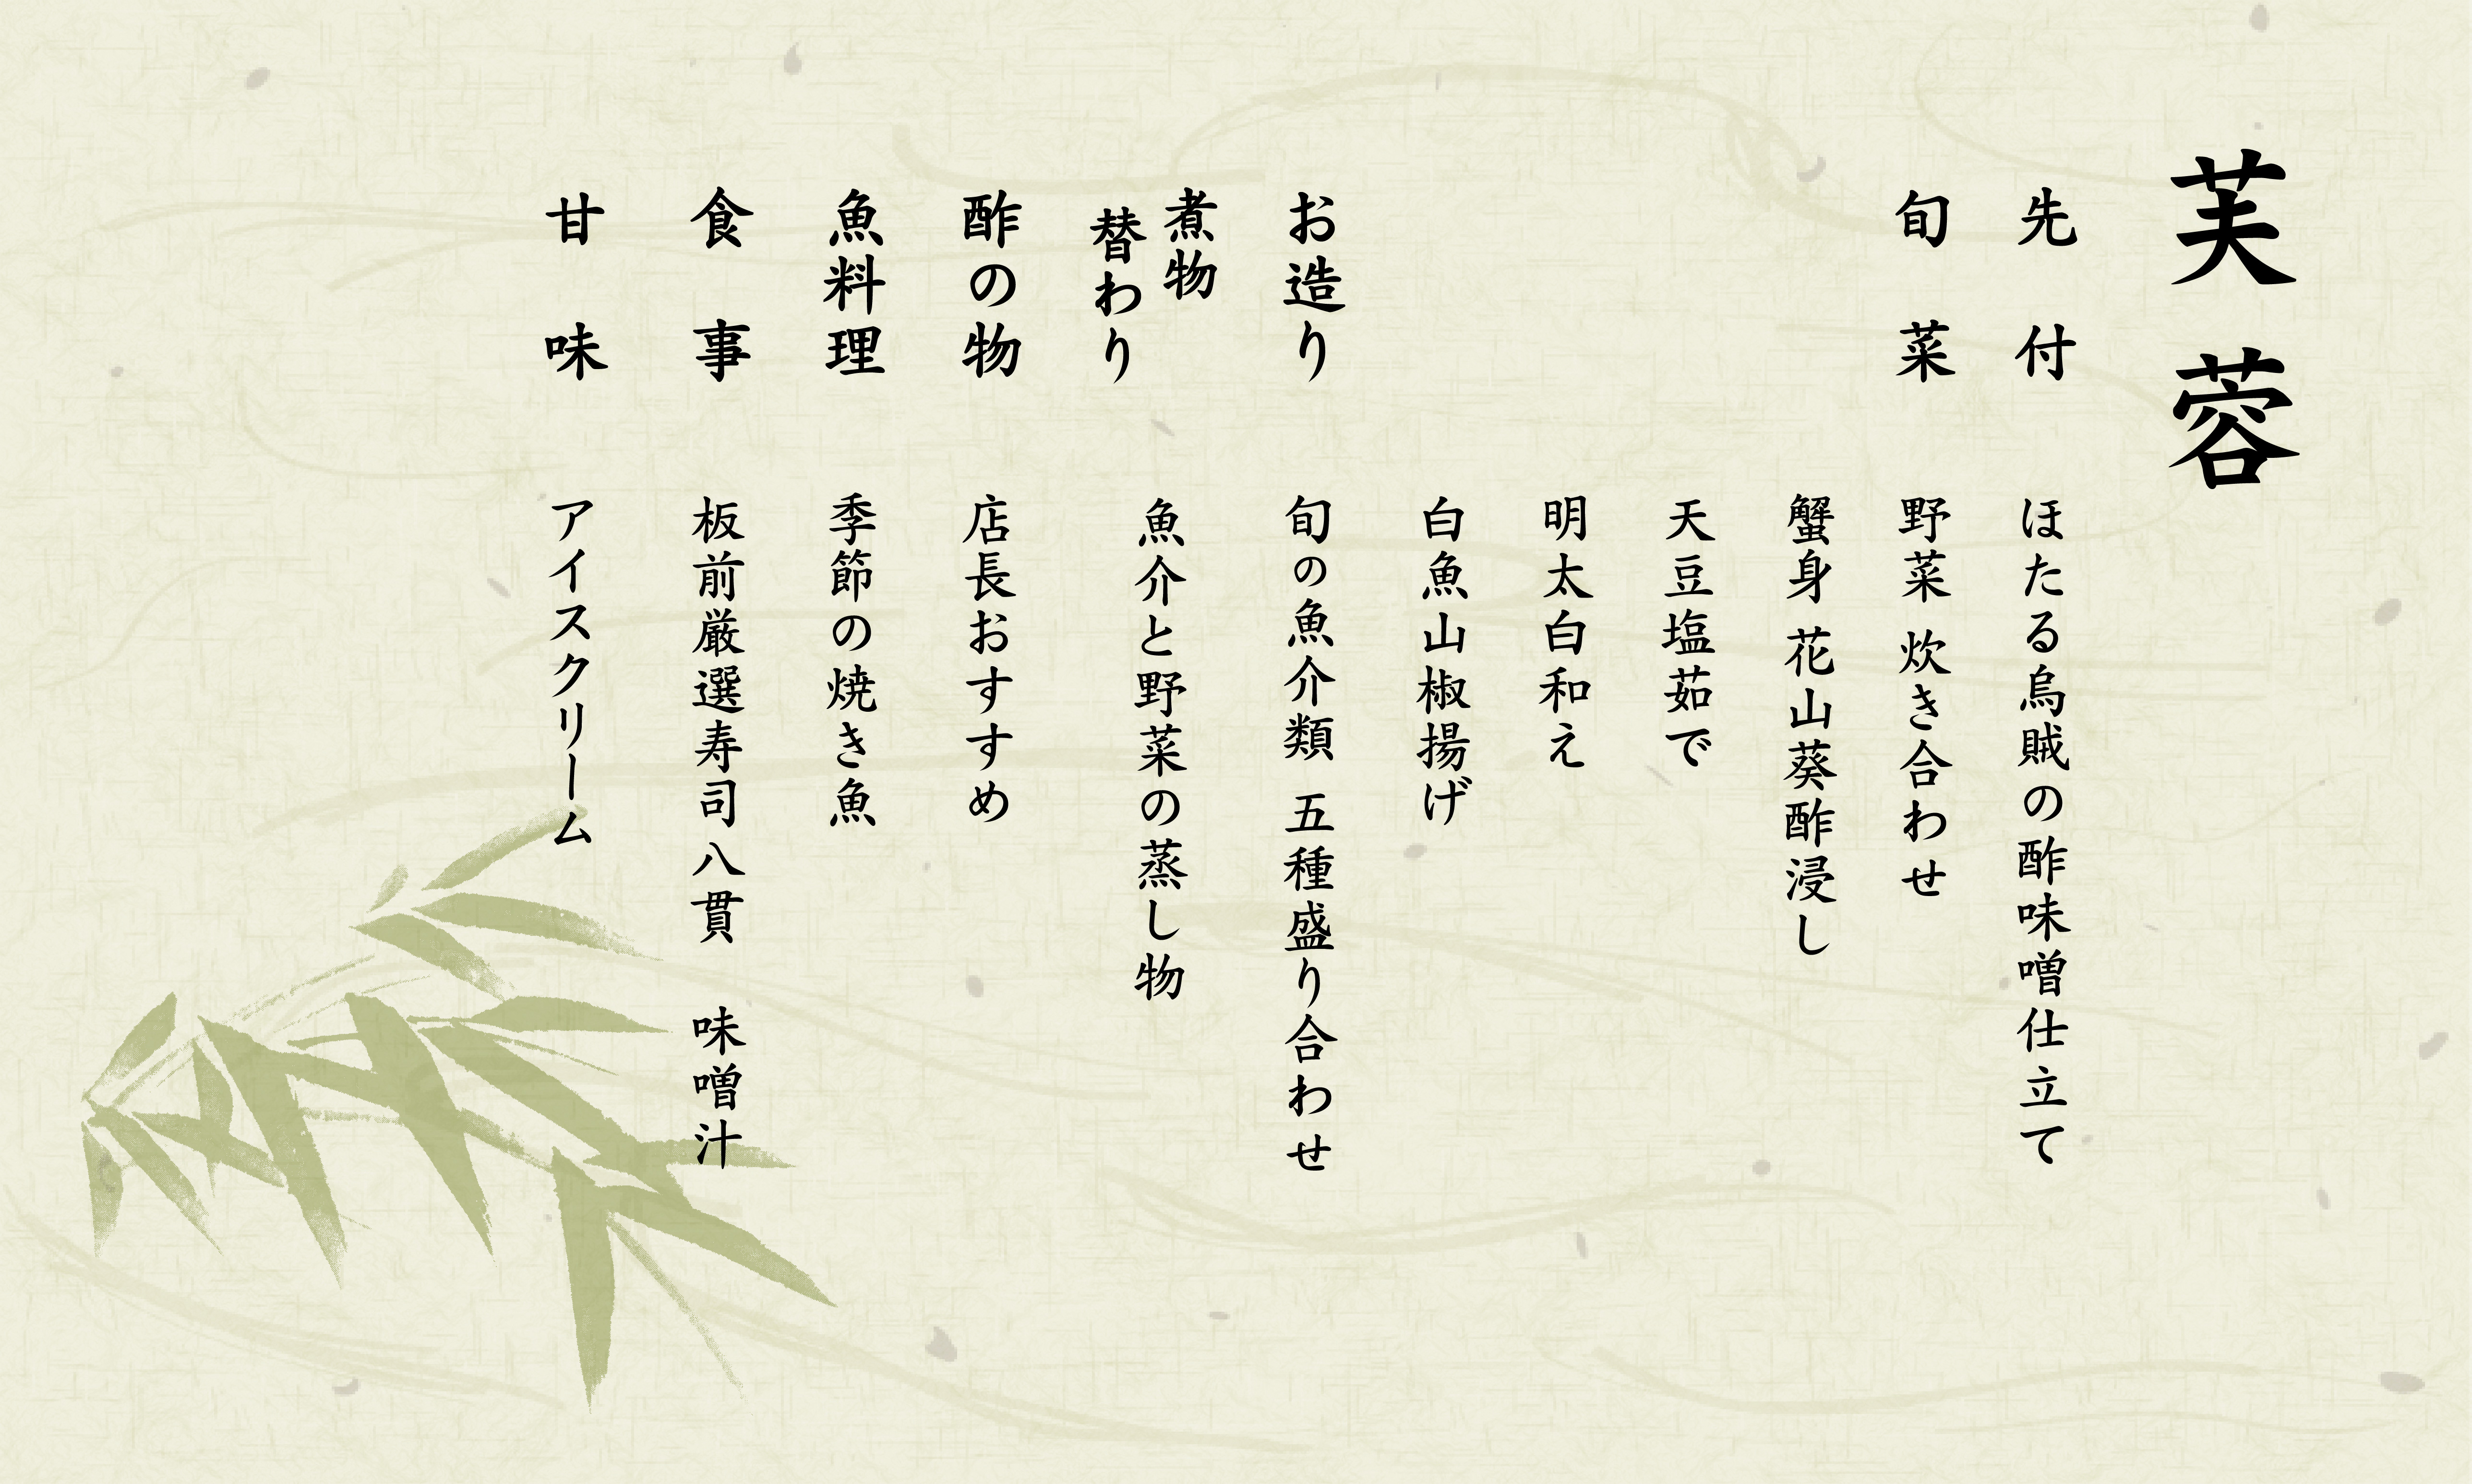 芙蓉
先付 ほたる烏賊の酢味噌仕立て
旬菜 野菜 炊き合わせ
蟹身 花山葵酢浸し
天豆塩茹で
明太白和え
白魚山椒揚げ
お造り 旬の魚介類 五種盛り合わせ
煮物
替わり 魚介と野菜の蒸し物
酢の物 店長おすすめ
魚料理 季節の焼き魚
食事 板前厳選寿司八貫 味噌汁
甘味 アイスクリーム